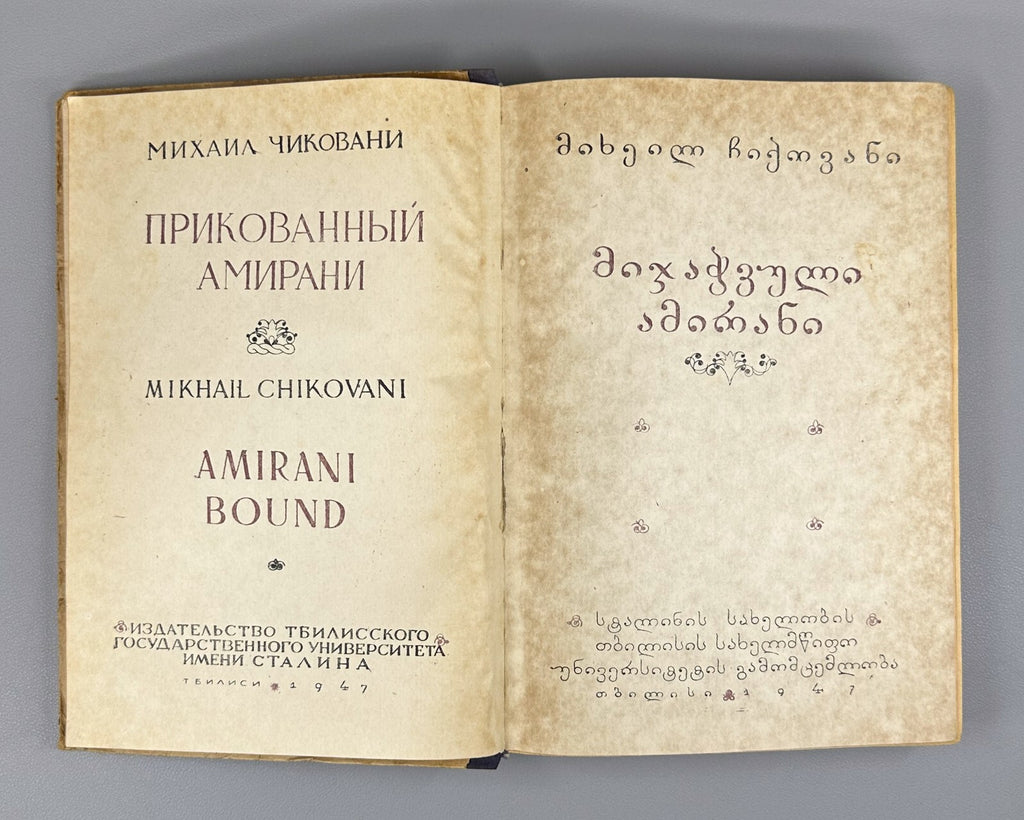 МИХАИЛ ЧИКОВАНИ
ПРИКОВАННЫЙ
АМИРАНИ
MIKHAIL CHIKOVANI
AMIRANI
BOUND
ИЗДАТЕЛЬСТВО ТБИЛИССКОГО
ГОСУДАРСТВЕННОГО УНИВЕРСИТЕТА
ИМЕНИ СТАЛИНА
ТБИЛИСИ 1947
მიხეილ ჩიქოვანი
მიჯაჭვული
ამირანი
სტალინის სახელობის
თბილისის სახელმწიფო
უნივერსიტეტის გამომცემლობა
თბილისი 1947